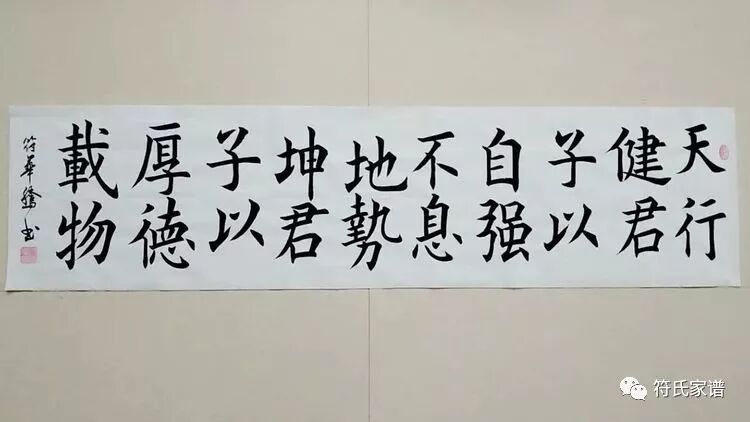 天行
健君
子以
自强
不息
地勢
坤君
子以
厚德
載物
符華騰书
符氏家谱